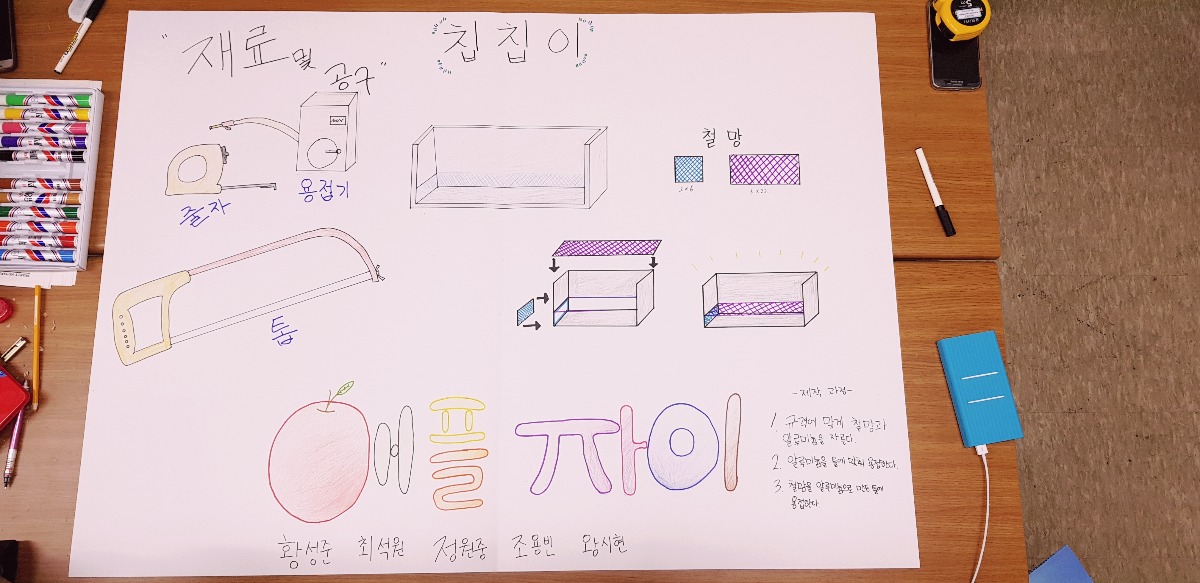 "재료 및 공구"
칩칩이
줄자
용접기
톱
철망
에플 짜이
-제작 과정-
1. 규격에 맞게 철망과
알루미늄을 자른다.
2. 알루미늄을 틀에 맞춰 용접한다.
3. 철망을 알루미늄으로 만든 틀에
용접한다
황성준 최석원 정원중 조용빈 왕시현
5m